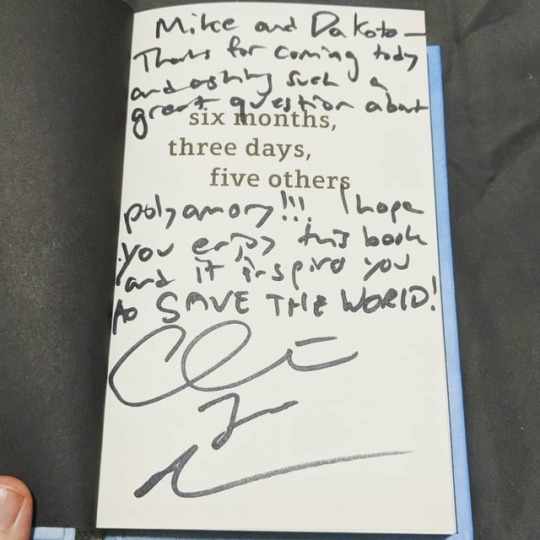 Mike and Dakota—
Thanks for coming today
and asking such a
great question about
six months,
three days,
five others
polyamory!!! I hope
you enjoy this book
and it inspires you
to SAVE THE WORLD!